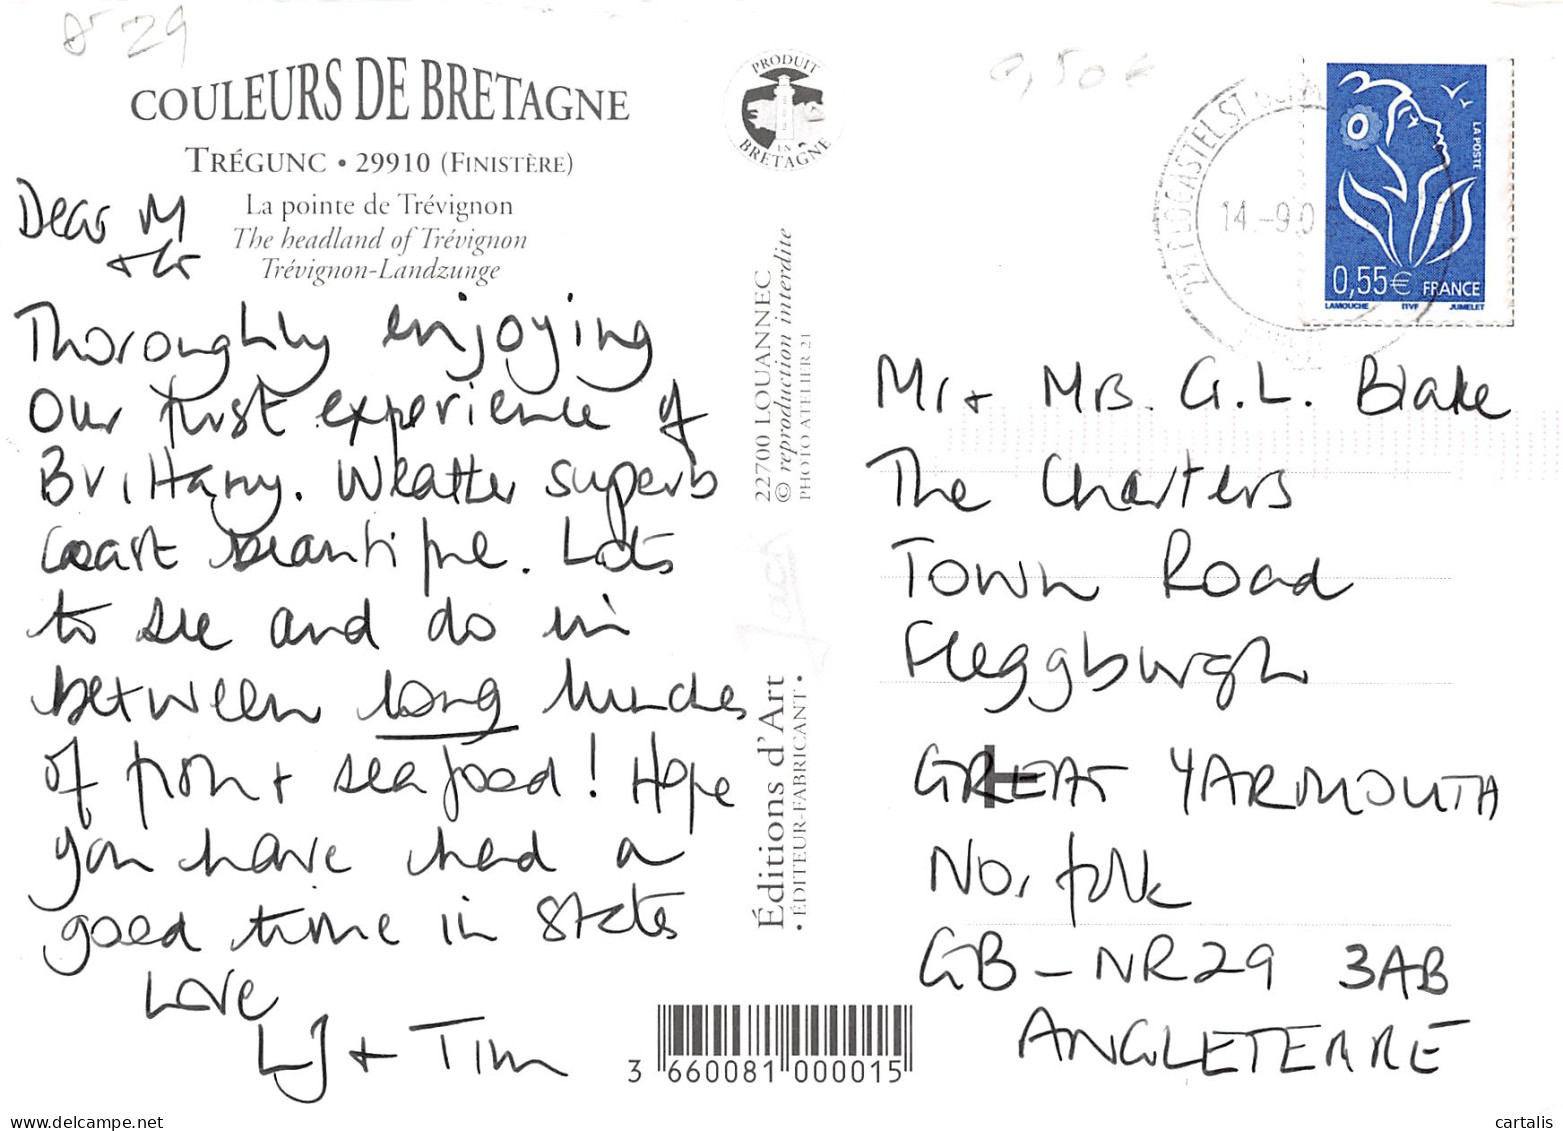 8 29
COULEURS DE BRETAGNE
TRÉGUNC • 29910 (FINISTÈRE)
La pointe de Trévignon
The headland of Trévignon
Trévignon-Landzunge
Dear M
Thoroughly enjoying
our first experience of
Brittany. Weather superb
coast beautiful. Lots
to see and do in
between long lunches
of fish + seafood! Hope
you have had a
good time in States
Love
LJ + Tim
PRODUIT
EN
BRETAGNE
22700 LOUANNEC
© reproduction interdite
PHOTO ATELIER 21
Jack
Éditions d'Art
• ÉDITEUR-FABRICANT •
3 660081 000015
0,50€
14 -9 0
LA POSTE
0,55€ FRANCE
LAMOUCHE ITVF JUMELET
Mr + Mrs. G.L. Blake
The Charters
Town Road
Fleggburgh
GREAT YARMOUTH
Norfolk
GB - NR29 3AB
ANGLETERRE
cartalis
delcampe.net